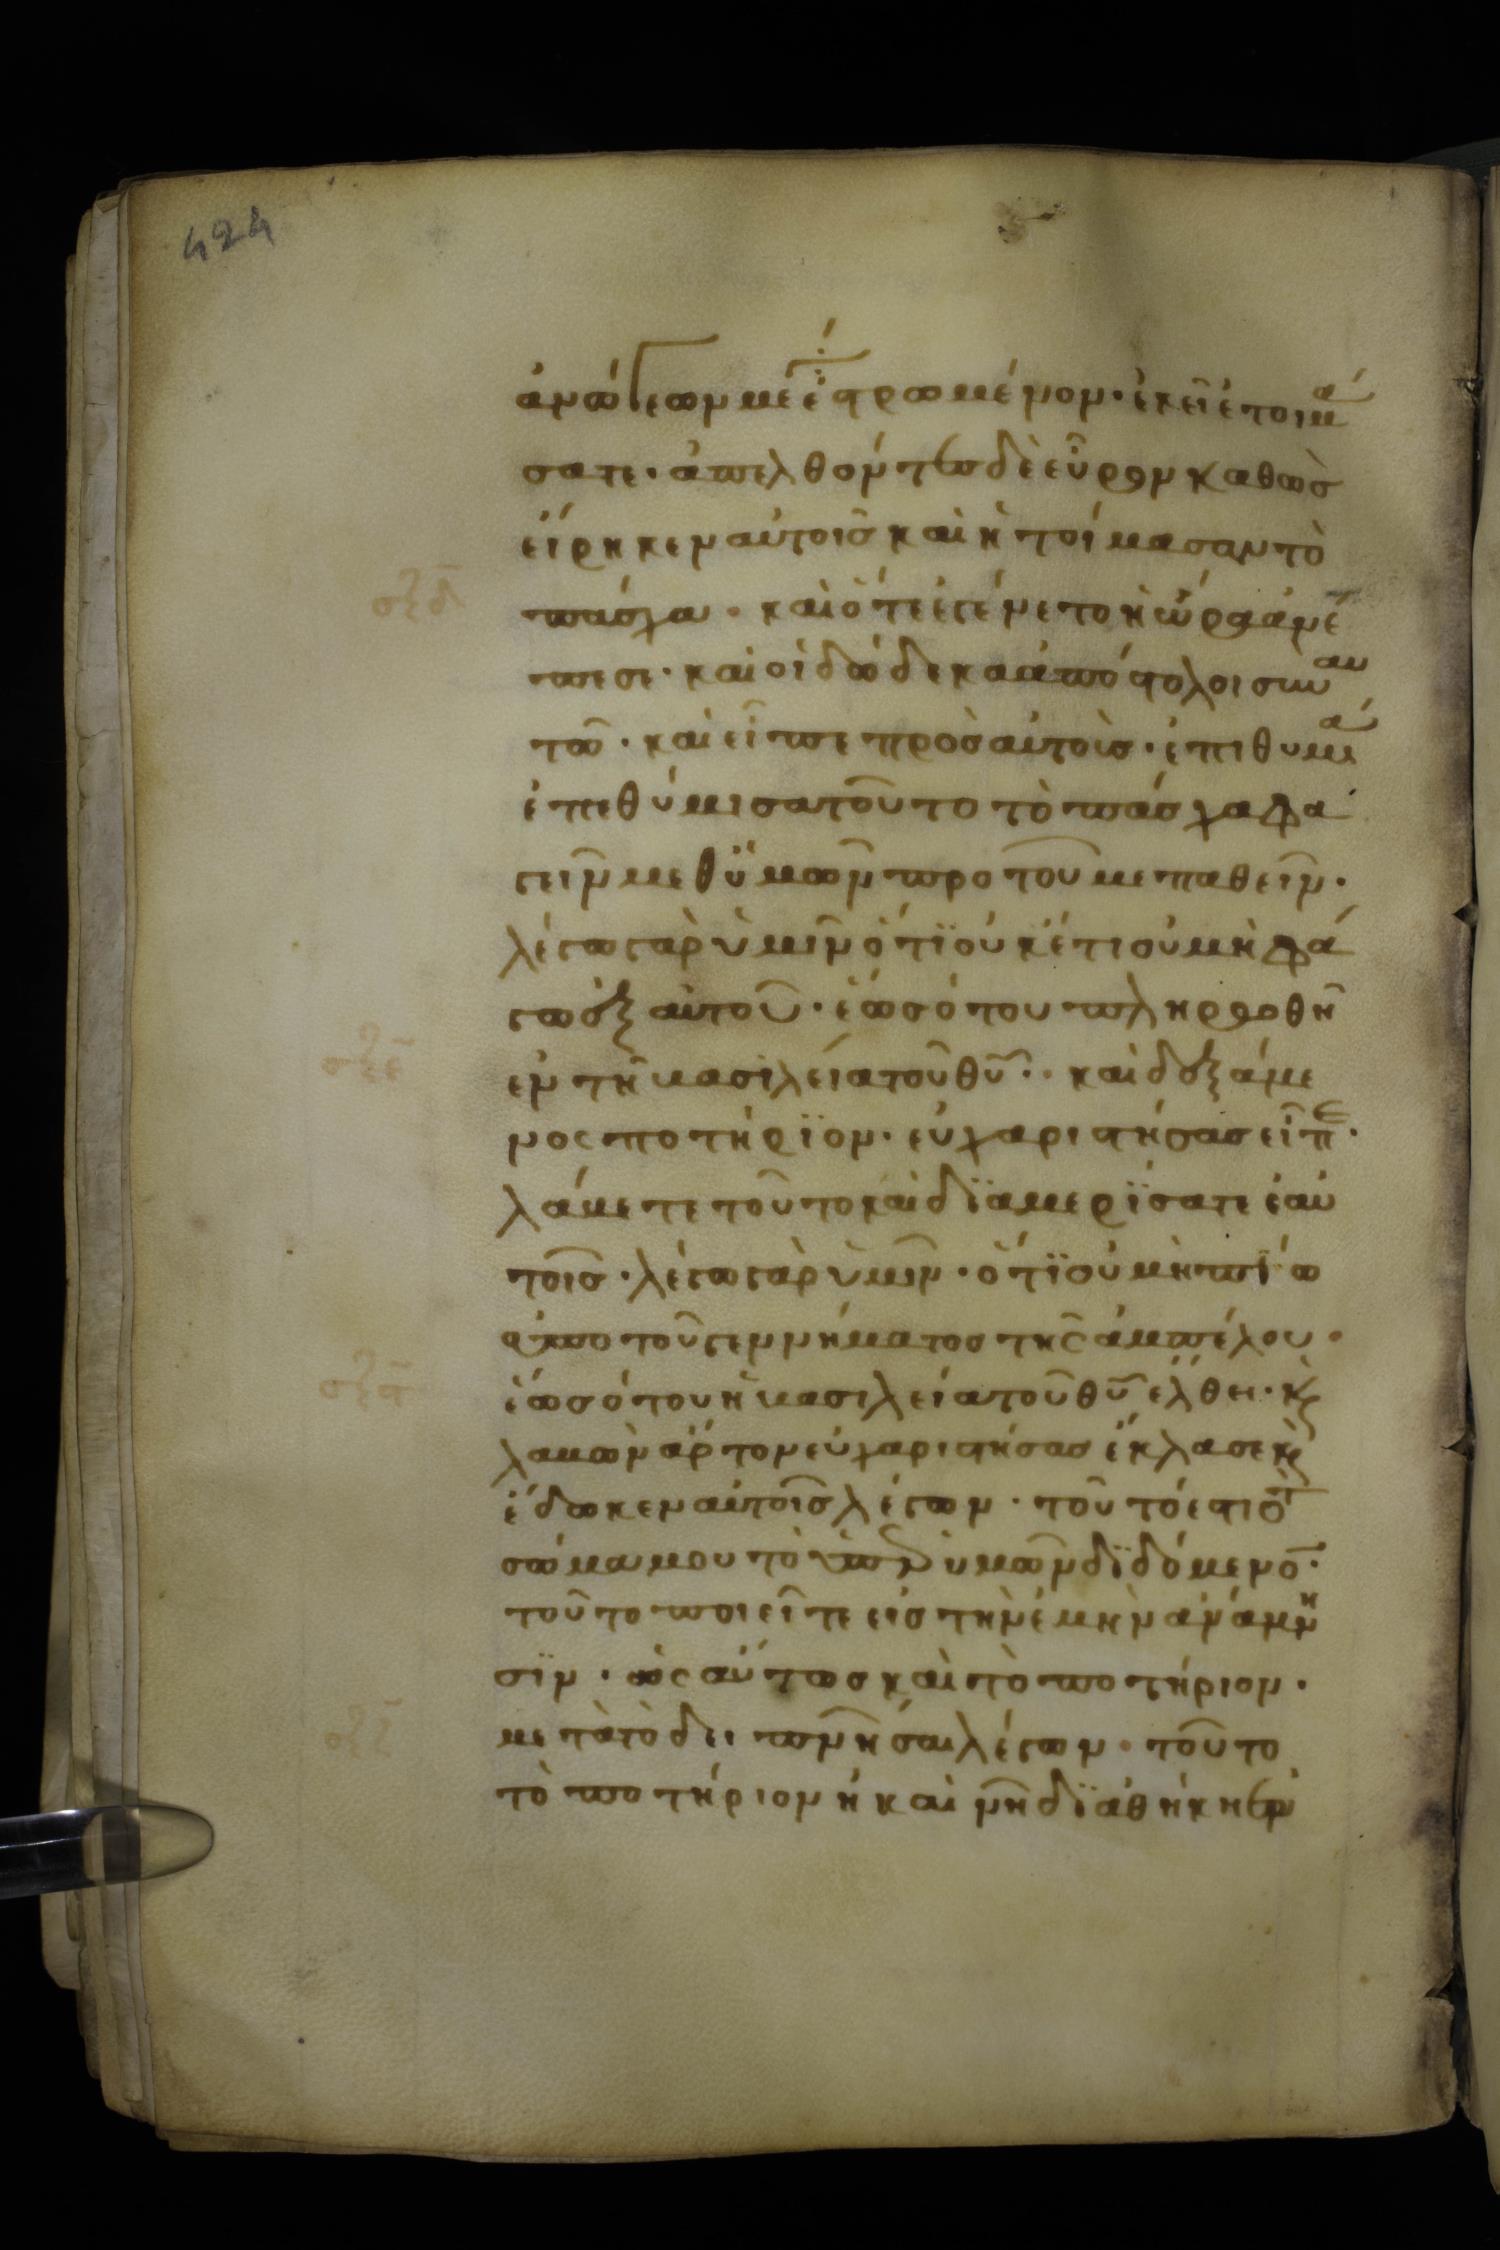 424
ἀνώγεων μέγ ἐστρωμένον· ἐκεῖ ἑτοιμά
σατε· ἀπελθόντες δὲ εὗρον καθὼς
εἴρηκεν αὐτοῖς καὶ ἡτοίμασαν τὸ
σξδ
πάσχα· καὶ ὅτε ἐγένετο ἡ ὥρα ἀνέ
πεσε· καὶ οἱ δώδεκα ἀπόστολοι σὺν αυ
τῶ· καὶ εἶπε πρὸς αὐτοὺς· ἐπιθυμία
ἐπεθύμισα τοῦτο τὸ πάσχα φα
γεῖν μεθ ϋμῶν προ τοῦ με παθεῖν·
λέγω γὰρ ὑμῖν ὅτϊ οὐκέτι οὐ μὴ φά
γω ἐξ αὐτοῦ· ἕως ότου πληρωθῆ
σξε
ἐν τῆ βασιλεία τοῦ θυ· καὶ δεξάμε
νος ποτήρϊον· εὐχαριστήσας εἶπε·
λάβετε τοῦτο καὶ δϊαμερϊσατε ἑαυ
τοῖς· λέγω γὰρ ὑμῖν· ὅτϊ οὐ μὴ πϊω
ἀπο τοῦ γεννήματος τῆς ἀμπέλου·
σξϛ
ἕως ότου ἡ βασιλεία τοῦ θυ ἔλθει· κ
λαβὼν ἄρτον εὐχαριστήσας ἔκλασε κ
ἔδωκεν αὐτοῖς λέγων· τοῦτό εστι τὸ
σώμα μου τὸ ὑπὲρ ὑμῶν δϊδόμενο·
τοῦτο ποιεῖτε εἰς τὴν ἐμὴν ἀνάμνη
σϊν· ὡςαύτως καὶ τὸ ποτήριον·
σξζ
μετὰ τὸ δειπνῆσαι λέγων· τοῦτο
τὸ ποτήριον ἡ καινῆ δϊαθήκη ἐν